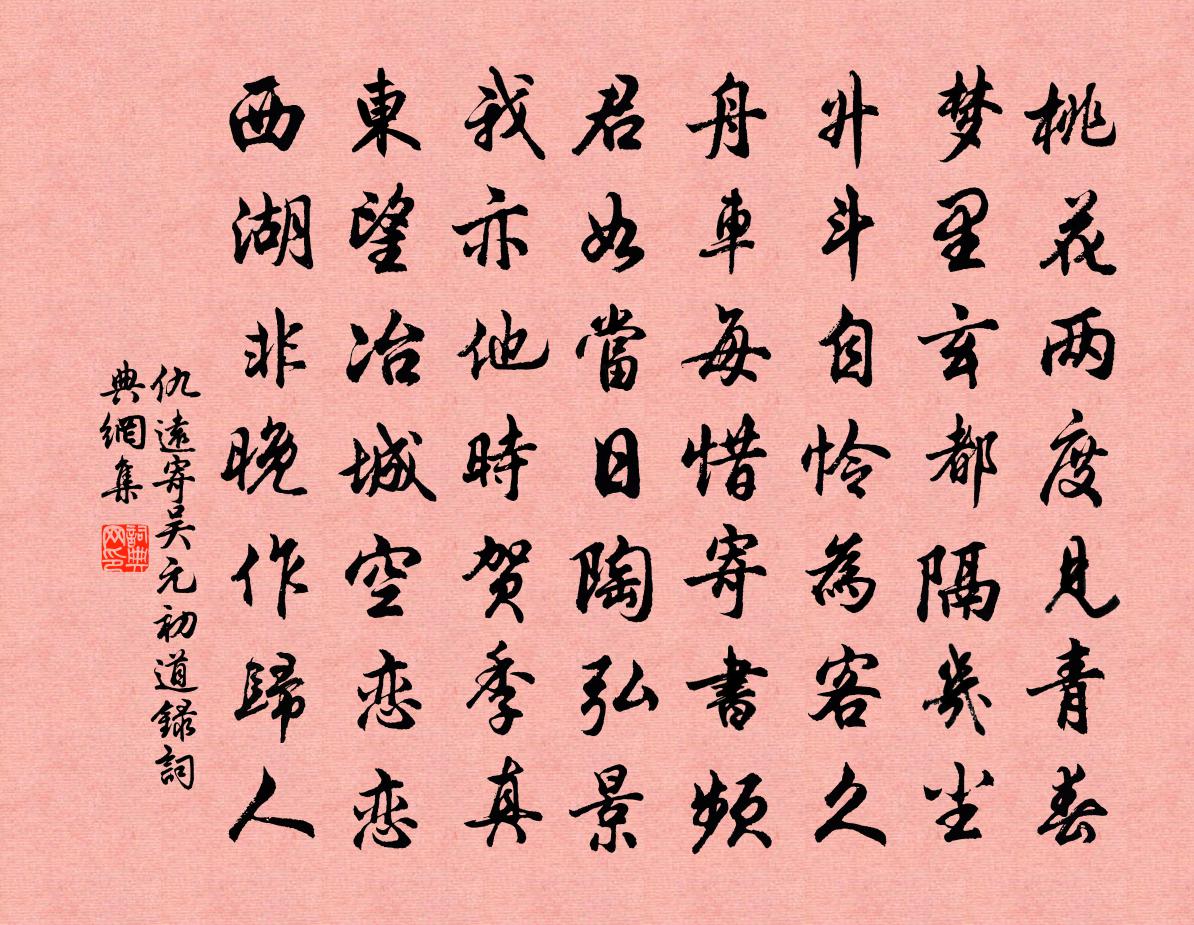 桃花两度見青春
梦里玄都隔幾尘
升斗自怜為客久
舟車每惜寄書頻
君如當日陶弘景
我亦他時贺季真
東望冶城空恋恋
西湖非晚作歸人
仇遠寄吴元初道録詞
典網集
詞典网印